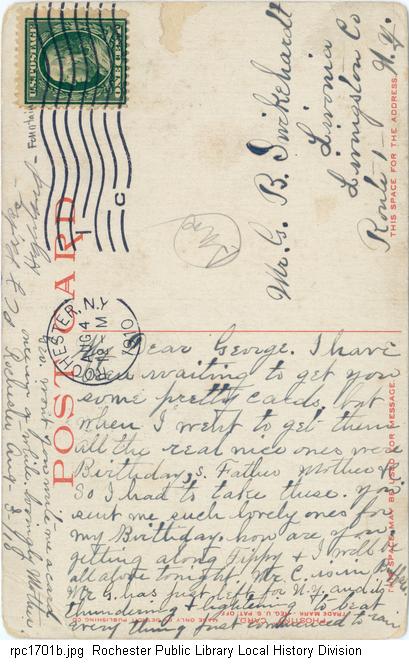 U.S. POSTAGE
ONE CENT
ROCHESTER, N.Y.
AUG 4
1910
C
POST CARD
Mr. G. B. Swikehardt
Livonia
Livingston Co
Route 1 N.Y.
THIS SPACE FOR THE ADDRESS.
My Dear George. I have
been waiting to get you
some pretty cards, but
when I went to get them
all the real nice ones were
Birthdays. Father Mother &c.
So I had to take these. You
sent me such lovely ones for
my Birthday. how are you
getting along Tippy & I will be
all alone tonight. Mr. C. is in
Mr G. has just left for N.Y. and is
thundering &
every thing just commenced to rain
Geo. won't you mile me a card
once in a while
Rochester Aug-3-10
THIS SPACE MAY BE USED FOR MESSAGE.
PHOSTINT CARD
TRADE MARK REG. U.S. PAT. OFF.
rpc1701b.jpg Rochester Public Library Local History Division